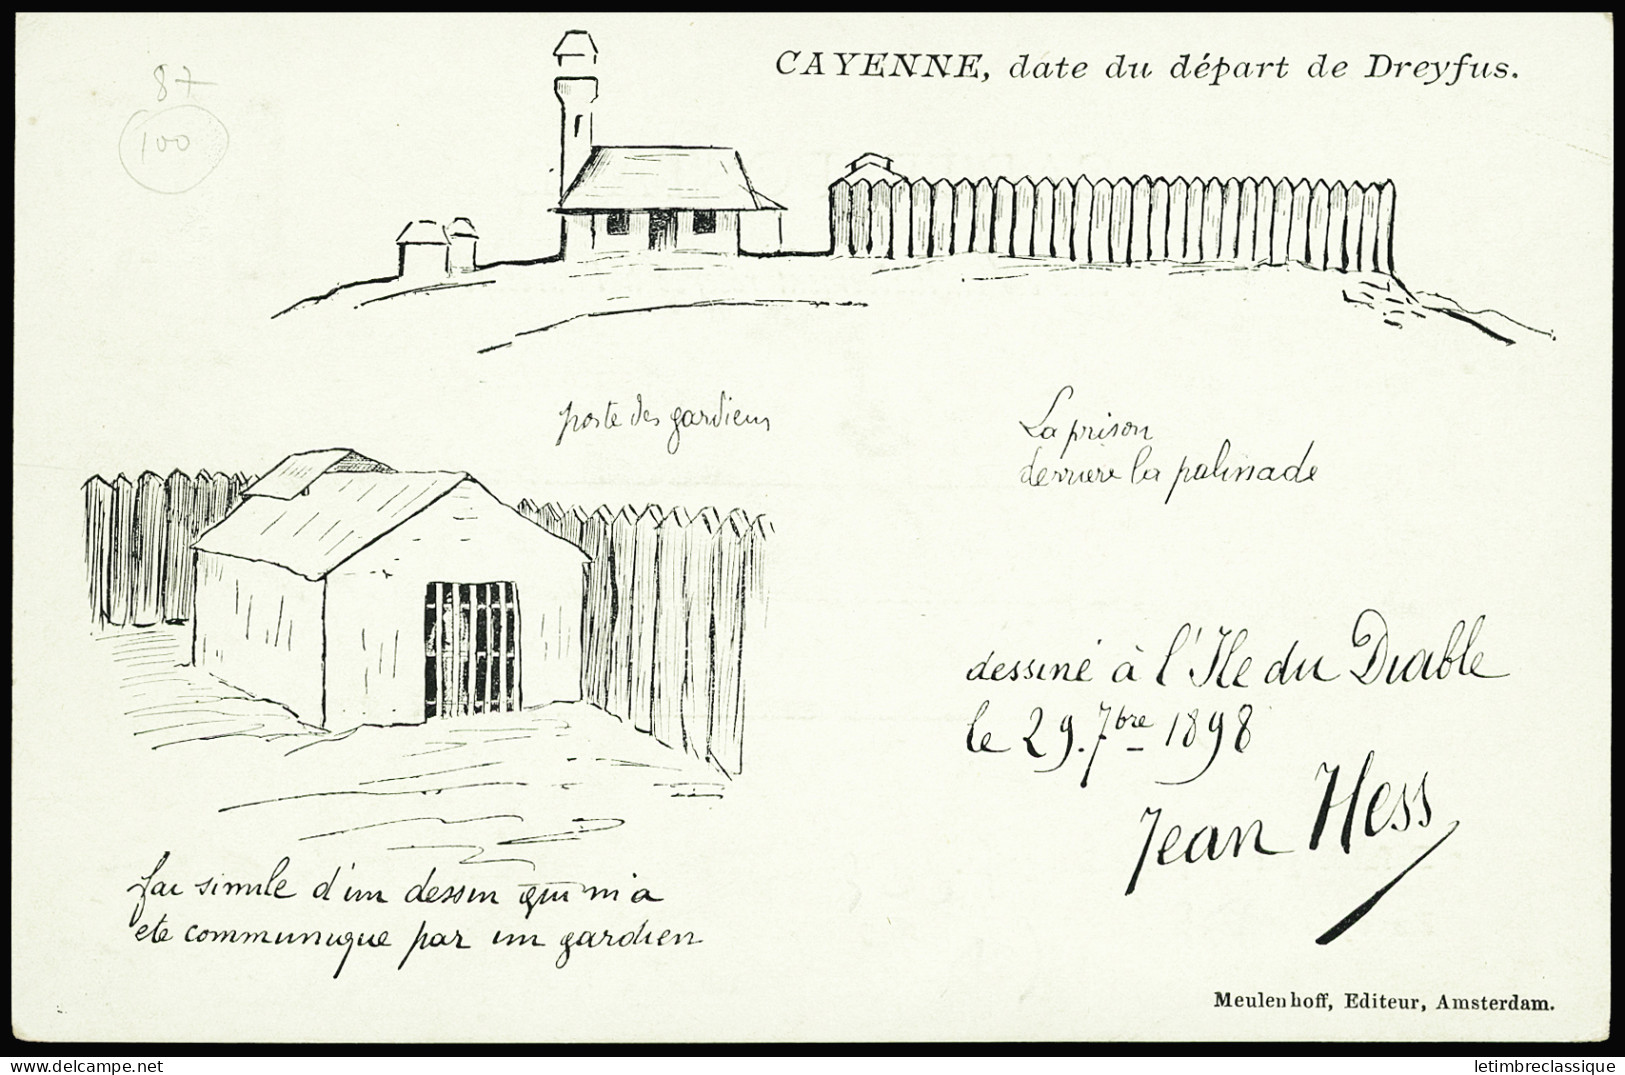 CAYENNE, date du départ de Dreyfus.
87
100
poste des gardiens
La prison
derriere la palissade
dessiné à l'Ile du Diable
le 29. 7bre 1898
Jean Hess
fac simile d'un dessin qui m'a
ete communique par un gardien
Meulenhoff, Editeur, Amsterdam.
delcampe.net
letimbreclassique